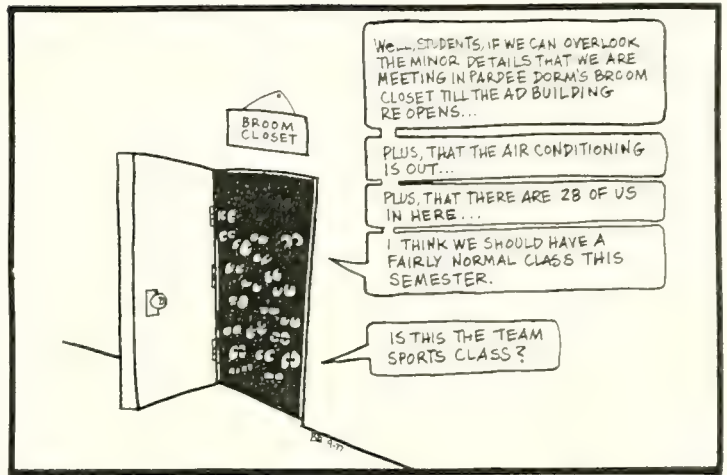 BROOM
CLOSET
WELL, STUDENTS, IF WE CAN OVERLOOK
THE MINOR DETAILS THAT WE ARE
MEETING IN PARDEE DORM'S BROOM
CLOSET TILL THE AD BUILDING
RE OPENS...
PLUS, THAT THE AIR CONDITIONING
IS OUT...
PLUS, THAT THERE ARE 28 OF US
IN HERE...
I THINK WE SHOULD HAVE A
FAIRLY NORMAL CLASS THIS
SEMESTER.
IS THIS THE TEAM
SPORTS CLASS?